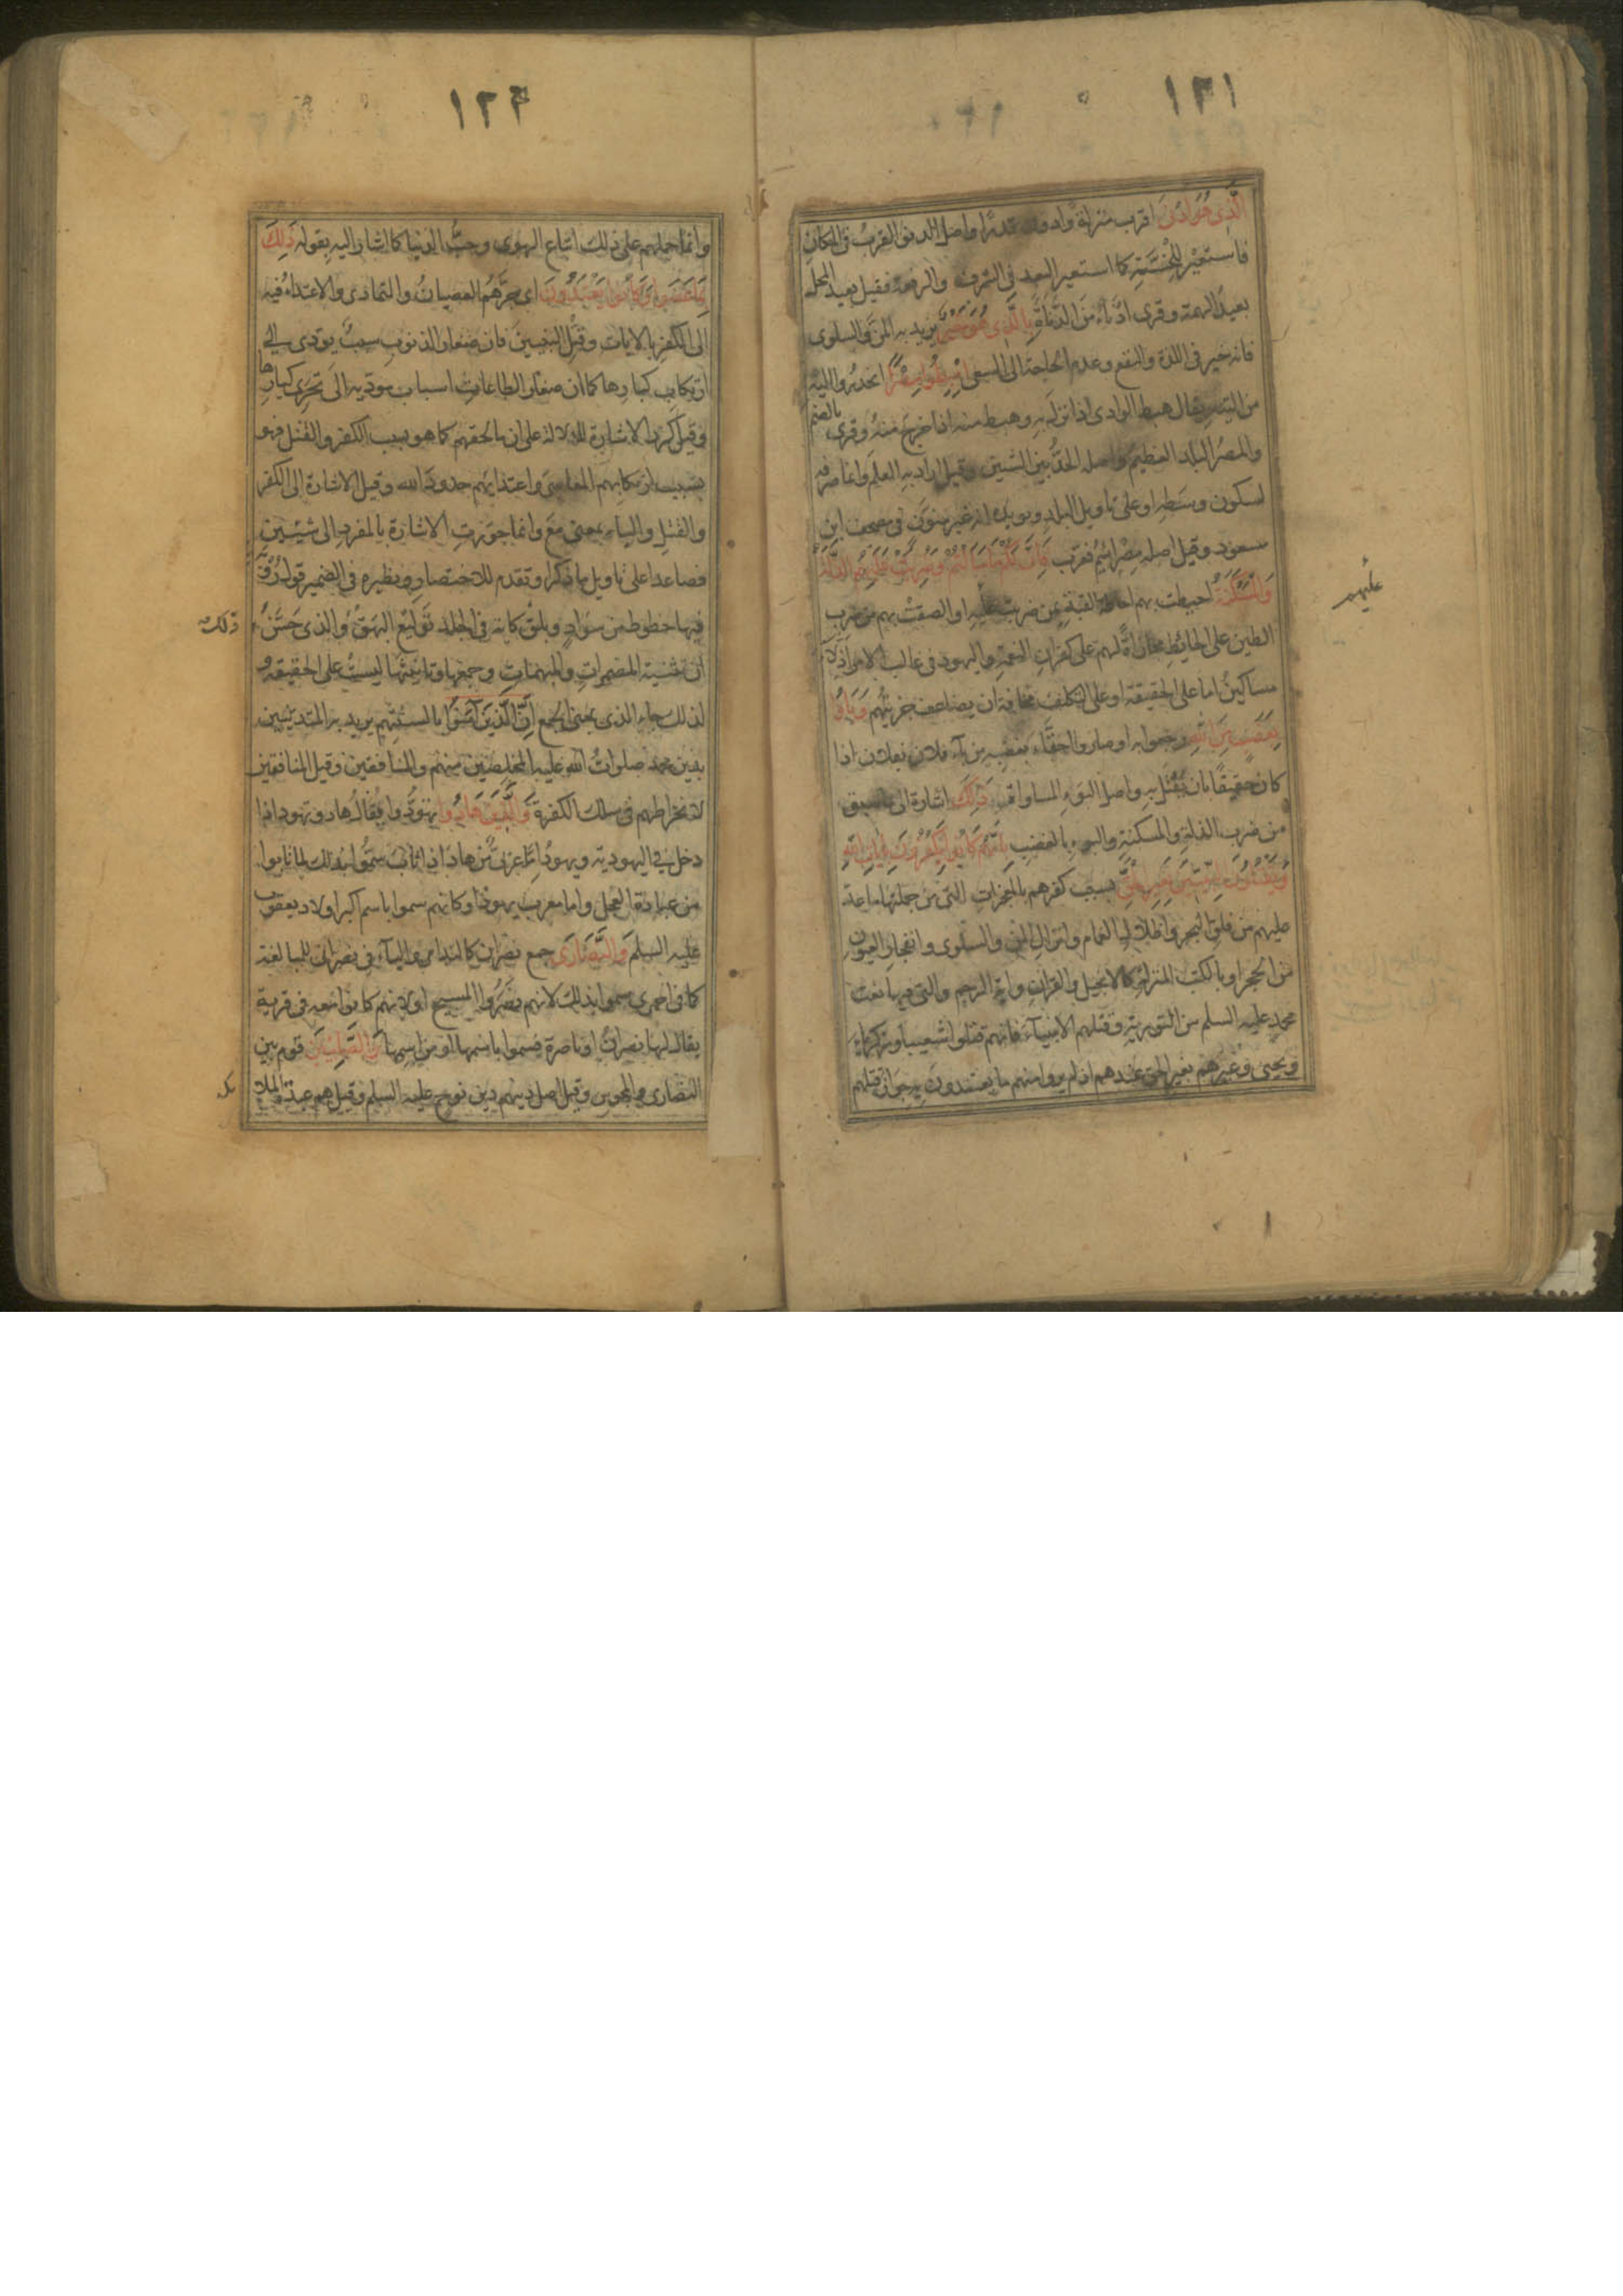 ١٢١
الَّذِي هُوَ أَدْنَى اقرب منزلة وادون قدرًا واصل الدنو القربُ فى المكانِ
فاستعير للخسّة كما استعير البعد فى الشرف والرفعة فقيل بعيد المحلّ
بعيدُ الهمة وقرى ادناء من الدناءة بِالَّذِي هُوَ خَيْرٌ يريد به المنّ والسلوى
فانه خير فى اللذة والنفع وعدم الحاجة الى السعى اهْبِطُوا مِصْرًا انحدروا اليه
من التيه يقال هبط الوادى اذا نزل به وهبط منه اذا خرج منهُ وقرى بالضم
والمصرُ البلد العظيم واصله الحدُّ بين الشيئين وقيل اراد به العلم وانما صرفه
لسكون وسَطِهِ او على تاويل البلد ويويده انه غير منون فى مصحف ابن
مسعود وقيل اصله مصراييم فعرّب فَإِنَّ لَكُمْ مَا سَأَلْتُمْ وَضُرِبَتْ عَلَيْهِمُ الذِّلَّةُ
وَالْمَسْكَنَةُ احيطت بهم احاطة القبة بمن ضربت عليه او الصقتْ بهم من ضرب
عليهم
الطين على الحائط مجازاةً لهم على كفران النعمة واليهود فى غالب الامر اذلاء
مساكينُ اما على الحقيقة او على التكلف مخافة ان يضاعف جزيتُهم وَبَاؤُ
بِغَضَبٍ مِنَ اللَّهِ رجعوا به او صاروا احقّاء بغضبه من باء فلان بفلان اذا
كان حقيقًا بان يُقْتَل به واصل البوء المساواة ذَلِكَ اشارة الى ما سبق
من ضرب الذلة والمسكنة والبوء بالغضب بِأَنَّهُمْ كَانُوا يَكْفُرُونَ بِآيَاتِ اللَّهِ
وَيَقْتُلُونَ النَّبِيِّينَ بِغَيْرِ الْحَقِّ بسبب كفرهم بالمعجزات التى من جملتها ما عدّ
عليهم من فلق البحر واظلال الغمام وانزال المن والسلوى وانفجار العيون
من الحجر او بالكتب المنزلة كالانجيل والقران واية الرجم والتى فيها نعت
محمد عليه السلم من التورية وقتلهم الانبياء فانهم قتلوا اشعيا وزكريا
ويحيى وغيرهم بغير الحق عندهم اذ لم يروا منهم ما يعتقدون به جواز قتلهم
١٢٢
وانما حملهم على ذلك اتباع الهوى وحبُّ الدنيا كما اشار اليه بقوله ذَلِكَ
بِمَا عَصَوْا وَكَانُوا يَعْتَدُونَ اى جرَّهُم العصيانُ والتمادى والاعتداءُ فيه
الى الكفر بالايات وقتل النبيين فان صغار الذنوب سببٌ يودى الى
ارتكاب كبارها كما ان صغار الطاعات اسباب مودية الى تحرى كبارها
وقيل كرر الاشارة للدلالة على ان ما لحقهم كما هو بسبب الكفر والقتل فهو
بسبب ارتكابهم المعاصى واعتدائهم حدود الله وقيل الاشارة الى الكفر
والقتل والباء بمعنى مَعَ وانما جوزت الاشارة بالمفرد الى شيئين
فصاعدا على تاويل ما ذكر او تقدم للاختصار ونظيره فى الضمير قول رُؤبة
فيها خطوط من سواد وبلق كانه فى الجلد تَوْلِيعُ البهَقْ والذى حَسَّنَ ذلك
ان تثنية المضمرات والمبهمات وجمعها وتانيثها ليستْ على الحقيقة و
لذلك جاء الذى بمعنى الجمع إِنَّ الَّذِينَ آمَنُوا بالسنتهم يريد به المتدينين
بدين محمد صلوات الله عليه المخلصين منهم والمنافقين وقيل المنافقين
لانخراطهم فى سلك الكفرة وَالَّذِينَ هَادُوا تهوّدُوا يُقال هاد وتهود اذا
دخل فى اليهودية ويهودُ اِمّا عربىٌّ من هاد اذا تابَ سمُّوا بذلك لما تابوا
من عبادة العجل واما معرب يهوذا وكانهم سموا باسم اكبر اولاد يعقوب
عليه السلم وَالنَّصَارَى جمع نصران كالندامى والياء فى نصرانى للمبالغة
كما فى احمرى سموا بذلك لانهم نصَرُوا المسيح او لانهم كانوا معه فى قرية
يقال لها نصرانُ او ناصرة فسموا باسمها او من اسمها وَالصَّابِئِينَ قوم بين
النصارى والمجوس وقيل اصل دينهم دين نوح عليه السلم وقيل هم عبدة الملا